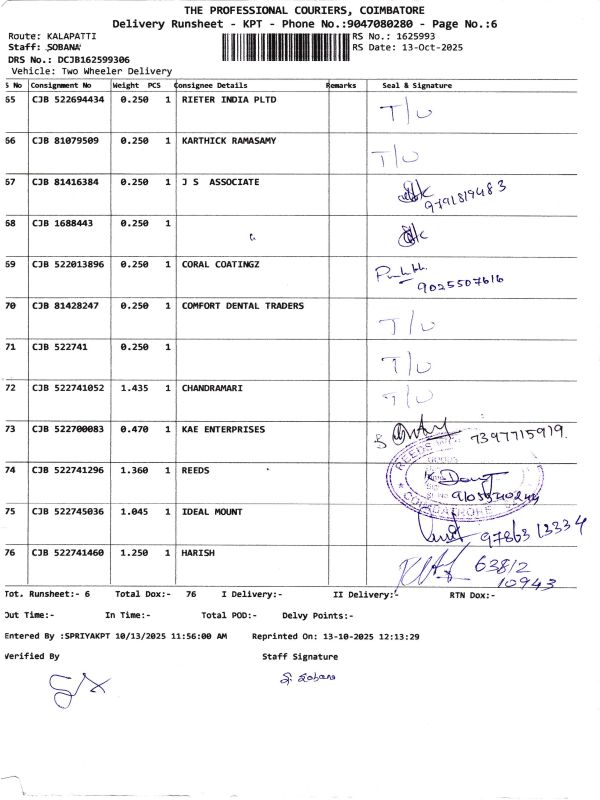 THE PROFESSIONAL COURIERS, COIMBATORE
Delivery Runsheet - KPT - Phone No.:9047080280 - Page No.:6
Route: KALAPATTI RS No.: 1625993
Staff: SOBANA RS Date: 13-Oct-2025
DRS No.: DCJB162599306
Vehicle: Two Wheeler Delivery
S No Consignment No Weight PCS Consignee Details Remarks Seal & Signature
65 CJB 522694434 0.250 1 RIETER INDIA PLTD T/U
66 CJB 81079509 0.250 1 KARTHICK RAMASAMY T/U
67 CJB 81416384 0.250 1 J S ASSOCIATE
9791819483
68 CJB 1688443 0.250 1
69 CJB 522013896 0.250 1 CORAL COATINGZ
9025507616
70 CJB 81428247 0.250 1 COMFORT DENTAL TRADERS T/U
71 CJB 522741 0.250 1 T/U
72 CJB 522741052 1.435 1 CHANDRAMARI T/U
73 CJB 522700083 0.470 1 KAE ENTERPRISES 7397715919.
REEDS
74 CJB 522741296 1.360 1 REEDS
COIMBATORE
75 CJB 522745036 1.045 1 IDEAL MOUNT 9786313334
76 CJB 522741460 1.250 1 HARISH 63812
10943
Tot. Runsheet:- 6 Total Dox:- 76 I Delivery:- II Delivery:- RTN Dox:-
Out Time:- In Time:- Total POD:- Delvy Points:-
Entered By :SPRIYAKPT 10/13/2025 11:56:00 AM Reprinted On: 13-10-2025 12:13:29
Verified By Staff Signature
S. Sobana